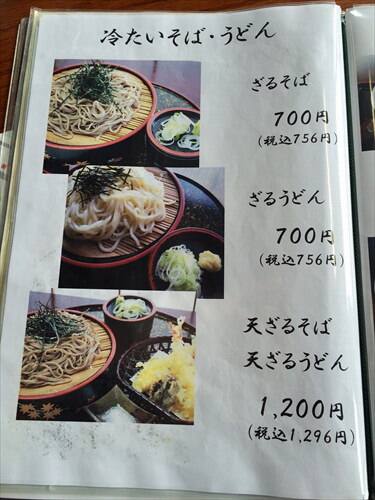 冷たいそば・うどん
ざるそば
700円
(税込756円)
ざるうどん
700円
(税込756円)
天ざるそば
天ざるうどん
1,200円
(税込1,296円)